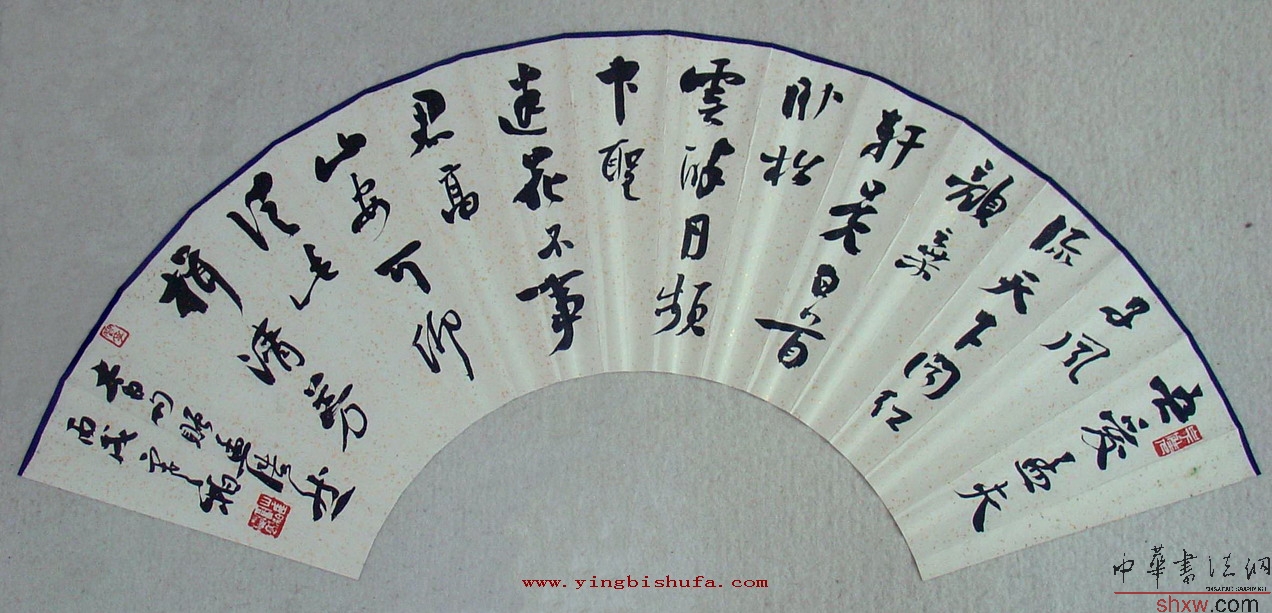 吾愛孟夫
子風
流天下闻红
颜棄
軒冕白首
卧松
雲醉月頻
中聖
迷花不事
君高
山安可仰
徒此
揖清芬
丙戌
www.yingbishufa.com
中華書法網
shxw.com